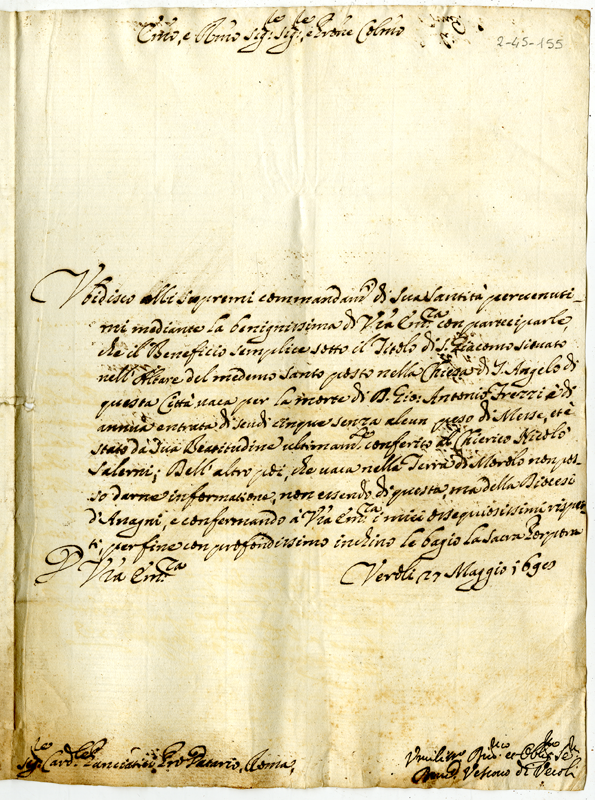 Em̃o, e Rm̃o Sig.re Sig.re, e Prõne Colm̃o
2-45-155
Vbidisco alli supremi commandam.ti di Sua Santità pervenuti-
mi mediante la benignissima di Vr̃a Em.za con parteciparle,
che il Beneficio semplice sotto il Titolo di S. Giacomo situato
nell'Altare del medemo Santo posto nella Chiesa di S. Angelo di
questa Città vaca per la morte di D. Gio: Antonio Frezzi è di
annua entrata di scudi cinque senza alcun peso di Messe, et è
stato da Sua Beatitudine ultimam.te conferito al Chierico Nicolò
Salerni; Dell'altro poi, che vaca nella Terra di Morolo non pos-
so darne informatione, non essendo di questa, ma della Diocesi
d'Anagni, e confermando à Vr̃a Em.za i miei ossequiosissimi rispet-
ti, per fine con profondissimo inchino le bagio la Sacra Porpora
D. Vr̃a Em.za
Veroli 27 Maggio 1690
Sig.r Card.le Panciatici Pro Datario, Roma,
Vmiliss.mo Div.mo et Oblig.mo Se.re
Vescovo di Veroli